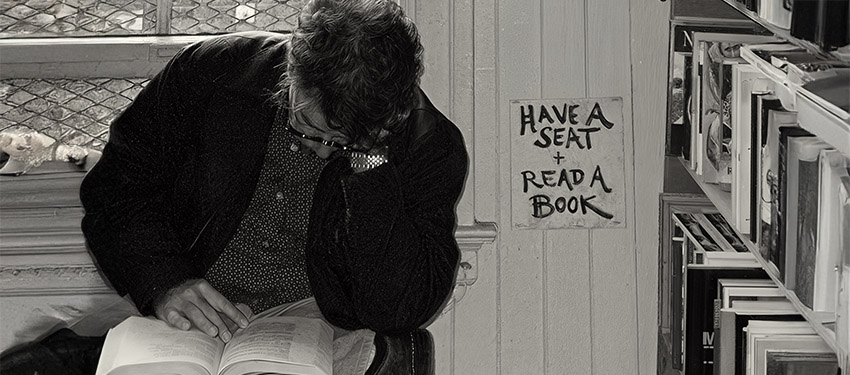 HAVE A
SEAT
+
READ A
BOOK